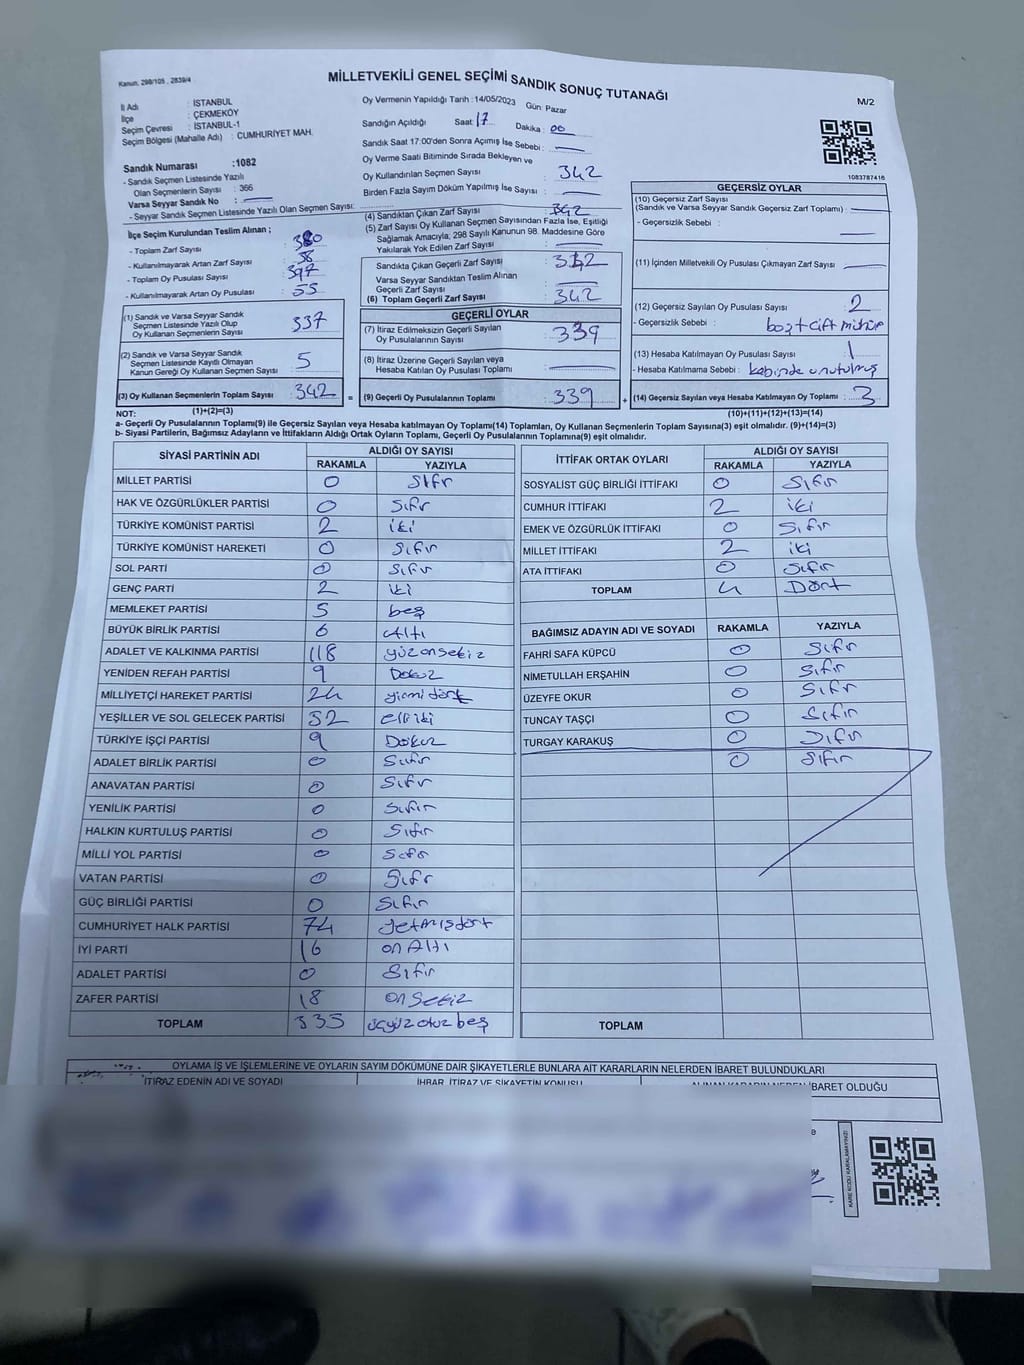 Kanun, 298/105 , 2839/4
MİLLETVEKİLİ GENEL SEÇİMİ SANDIK SONUÇ TUTANAĞI
M/2
İl Adı : İSTANBUL
İlçe : ÇEKMEKÖY
Seçim Çevresi : İSTANBUL-1
Seçim Bölgesi (Mahalle Adı) : CUMHURİYET MAH.
Sandık Numarası :1082
- Sandık Seçmen Listesinde Yazılı
Olan Seçmenlerin Sayısı : 366
Varsa Seyyar Sandık No :
- Seyyar Sandık Seçmen Listesinde Yazılı Olan Seçmen Sayısı:
Oy Vermenin Yapıldığı Tarih :14/05/2023 Gün: Pazar
Sandığın Açıldığı Saat: 17 Dakika : 00
Sandık Saat 17:00'den Sonra Açımış İse Sebebi :
Oy Verme Saati Bitiminde Sırada Bekleyen ve
Oy Kullandırılan Seçmen Sayısı : 342
Birden Fazla Sayım Döküm Yapılmış İse Sayısı :
1083787416
İlçe Seçim Kurulundan Teslim Alınan ;
- Toplam Zarf Sayısı : 380
- Kullanılmayarak Artan Zarf Sayısı : 38
- Toplam Oy Pusulası Sayısı : 397
- Kullanılmayarak Artan Oy Pusulası : 55
(1) Sandık ve Varsa Seyyar Sandık
Seçmen Listesinde Yazılı Olup
Oy Kullanan Seçmenlerin Sayısı : 337
(2) Sandık ve Varsa Seyyar Sandık
Seçmen Listesinde Kayıtlı Olmayan
Kanun Gereği Oy Kullanan Seçmen Sayısı : 5
(3) Oy Kullanan Seçmenlerin Toplam Sayısı : 342
(1)+(2)=(3)
(4) Sandıktan Çıkan Zarf Sayısı : 342
(5) Zarf Sayısı Oy Kullanan Seçmen Sayısından Fazla İse, Eşitliği
Sağlamak Amacıyla, 298 Sayılı Kanunun 98. Maddesine Göre
Yakılarak Yok Edilen Zarf Sayısı :
Sandıkta Çıkan Geçerli Zarf Sayısı : 342
Varsa Seyyar Sandıktan Teslim Alınan
Geçerli Zarf Sayısı :
(6) Toplam Geçerli Zarf Sayısı : 342
GEÇERLİ OYLAR
(7) İtiraz Edilmeksizin Geçerli Sayılan
Oy Pusulalarının Sayısı : 339
(8) İtiraz Üzerine Geçerli Sayılan veya
Hesaba Katılan Oy Pusulası Toplamı :
= (9) Geçerli Oy Pusulalarının Toplamı : 339 +
GEÇERSİZ OYLAR
(10) Geçersiz Zarf Sayısı
(Sandık ve Varsa Seyyar Sandık Geçersiz Zarf Toplamı) :
- Geçersizlik Sebebi :
(11) İçinden Milletvekili Oy Pusulası Çıkmayan Zarf Sayısı :
(12) Geçersiz Sayılan Oy Pusulası Sayısı : 2
- Geçersizlik Sebebi : boş+çift mühür
(13) Hesaba Katılmayan Oy Pusulası Sayısı : 1
- Hesaba Katılmama Sebebi : kabinde unutulmuş
(14) Geçersiz Sayılan veya Hesaba Katılmayan Oy Toplamı : 3
(10)+(11)+(12)+(13)=(14)
NOT:
a- Geçerli Oy Pusulalarının Toplamı(9) ile Geçersiz Sayılan veya Hesaba katılmayan Oy Toplamı(14) Toplamları, Oy Kullanan Seçmenlerin Toplam Sayısına(3) eşit olmalıdır. (9)+(14)=(3)
b- Siyasi Partilerin, Bağımsız Adayların ve İttifakların Aldığı Ortak Oyların Toplamı, Geçerli Oy Pusulalarının Toplamına(9) eşit olmalıdır.
SİYASİ PARTİNİN ADI ALDIĞI OY SAYISI
RAKAMLA YAZIYLA
MİLLET PARTİSİ 0 Sıfır
HAK VE ÖZGÜRLÜKLER PARTİSİ 0 Sıfır
TÜRKİYE KOMÜNİST PARTİSİ 2 iki
TÜRKİYE KOMÜNİST HAREKETİ 0 Sıfır
SOL PARTİ 0 Sıfır
GENÇ PARTİ 2 iki
MEMLEKET PARTİSİ 5 beş
BÜYÜK BİRLİK PARTİSİ 6 Altı
ADALET VE KALKINMA PARTİSİ 118 yüzonsekiz
YENİDEN REFAH PARTİSİ 9 Dokuz
MİLLİYETÇİ HAREKET PARTİSİ 24 yirmidört
YEŞİLLER VE SOL GELECEK PARTİSİ 52 elliiki
TÜRKİYE İŞÇİ PARTİSİ 9 Dokuz
ADALET BİRLİK PARTİSİ 0 Sıfır
ANAVATAN PARTİSİ 0 Sıfır
YENİLİK PARTİSİ 0 Sıfır
HALKIN KURTULUŞ PARTİSİ 0 Sıfır
MİLLİ YOL PARTİSİ 0 Sıfır
VATAN PARTİSİ 0 Sıfır
GÜÇ BİRLİĞİ PARTİSİ 0 Sıfır
CUMHURİYET HALK PARTİSİ 74 yetmişdört
İYİ PARTİ 16 on Altı
ADALET PARTİSİ 0 Sıfır
ZAFER PARTİSİ 18 on Sekiz
TOPLAM 335 üçyüz otuz beş
İTTİFAK ORTAK OYLARI ALDIĞI OY SAYISI
RAKAMLA YAZIYLA
SOSYALİST GÜÇ BİRLİĞİ İTTİFAKI 0 Sıfır
CUMHUR İTTİFAKI 2 iki
EMEK VE ÖZGÜRLÜK İTTİFAKI 0 Sıfır
MİLLET İTTİFAKI 2 iki
ATA İTTİFAKI 0 Sıfır
TOPLAM 4 Dört
BAĞIMSIZ ADAYIN ADI VE SOYADI RAKAMLA YAZIYLA
FAHRİ SAFA KÜPCÜ 0 Sıfır
NİMETULLAH ERŞAHİN 0 Sıfır
ÜZEYFE OKUR 0 Sıfır
TUNCAY TAŞÇI 0 Sıfır
TURGAY KARAKUŞ 0 Sıfır
0 Sıfır
TOPLAM
OYLAMA İŞ VE İŞLEMLERİNE VE OYLARIN SAYIM DÖKÜMÜNE DAİR ŞİKAYETLERLE BUNLARA AİT KARARLARIN NELERDEN İBARET BULUNDUKLARI
İTİRAZ EDENİN ADI VE SOYADI İHBAR, İTİRAZ VE ŞİKAYETİN KONUSU ALINAN KARARIN NEDEN İBARET OLDUĞU
KARE KODU KARALAMAYINIZ!